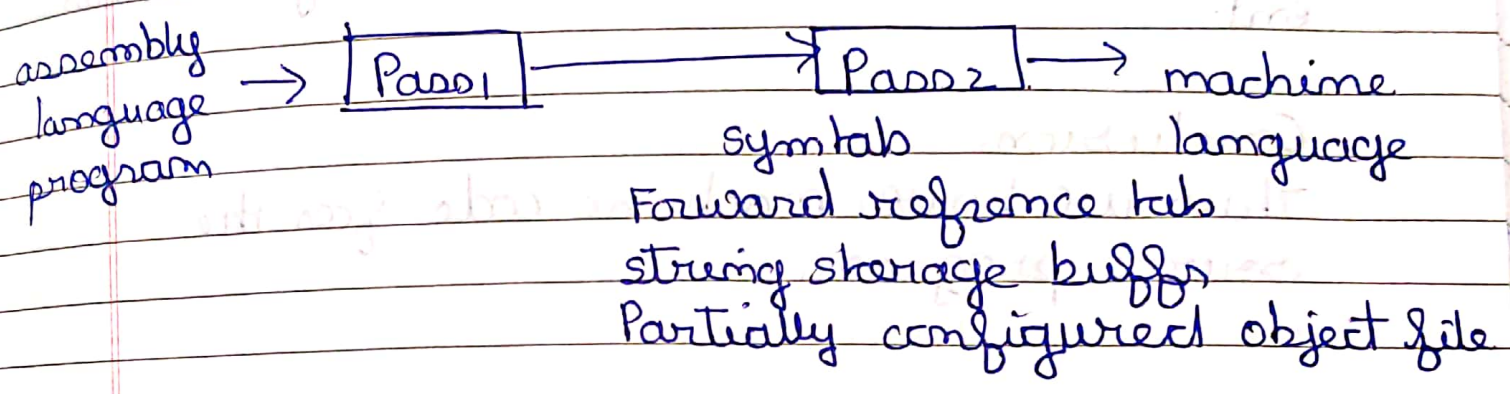 assembly
language
program
→ Pass1 → Pass2 → machine
language
symtab
Forward refrence tab
string storage buffr
Partially configured object file